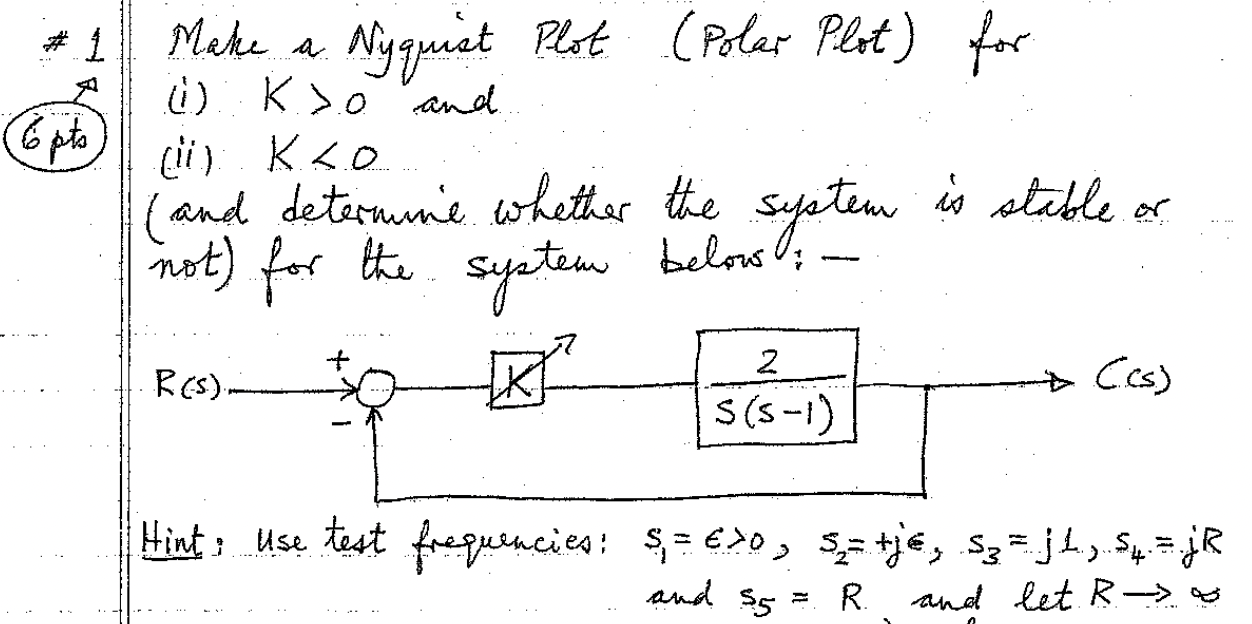 # 1 Make a Nyquist Plot (Polar Plot) for
6 pts
(i) K > 0 and
(ii) K < 0
(and determine whether the system is stable or
not) for the system below : —
R(s) + K 2 C(s)
− S(S-1)
Hint: Use test frequencies: S₁ = ε>0, S₂= +jε, S₃ = j1, S₄ = jR
and S₅ = R and let R → ∞